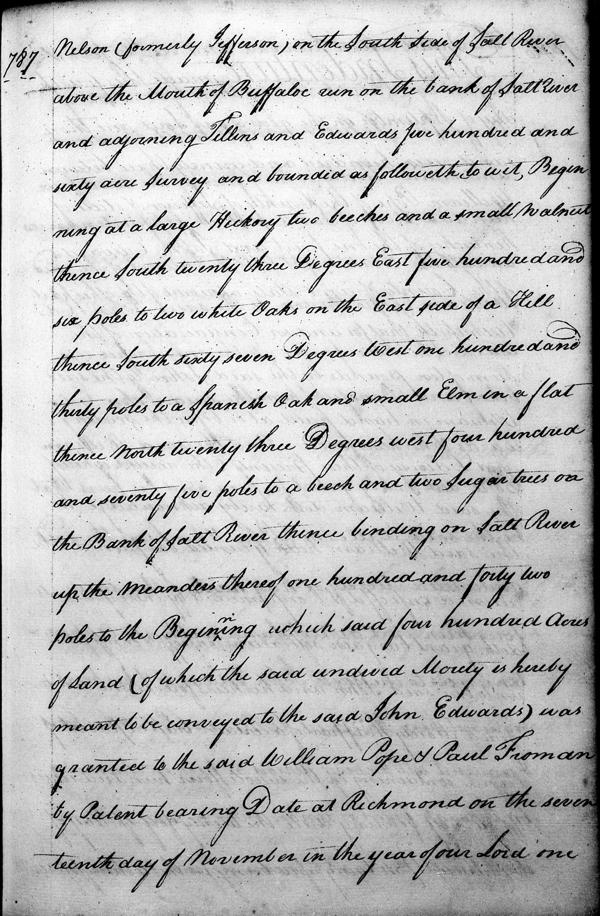 787
Nelson (formerly Jefferson) on the South side of Salt River
above the Mouth of Buffaloe run on the bank of Salt River
and adjoining Tillins and Edwards five hundred and
sixty acre Survey and bounded as followeth, to wit, Begin
ning at a large Hickory two beeches and a small Walnut
thence South twenty three Degrees East five hundred and
six poles to two white Oaks on the East side of a Hill
thence South sixty seven Degrees West one hundred and
thirty poles to a Spanish Oak and small Elm in a flat
thence North twenty three Degrees west four hundred
and seventy five poles to a beech and two Sugar trees on
the Bank of Salt River thence binding on Salt River
up the meanders thereof one hundred and forty two
poles to the Beginning which said four hundred Acres
of Land (of which the said undivid Moiety is hereby
meant to be conveyed to the said John Edwards) was
granted to the said William Pope & Paul Froman
by Patent bearing Date at Richmond on the seven
teenth day of November in the year of our Lord one